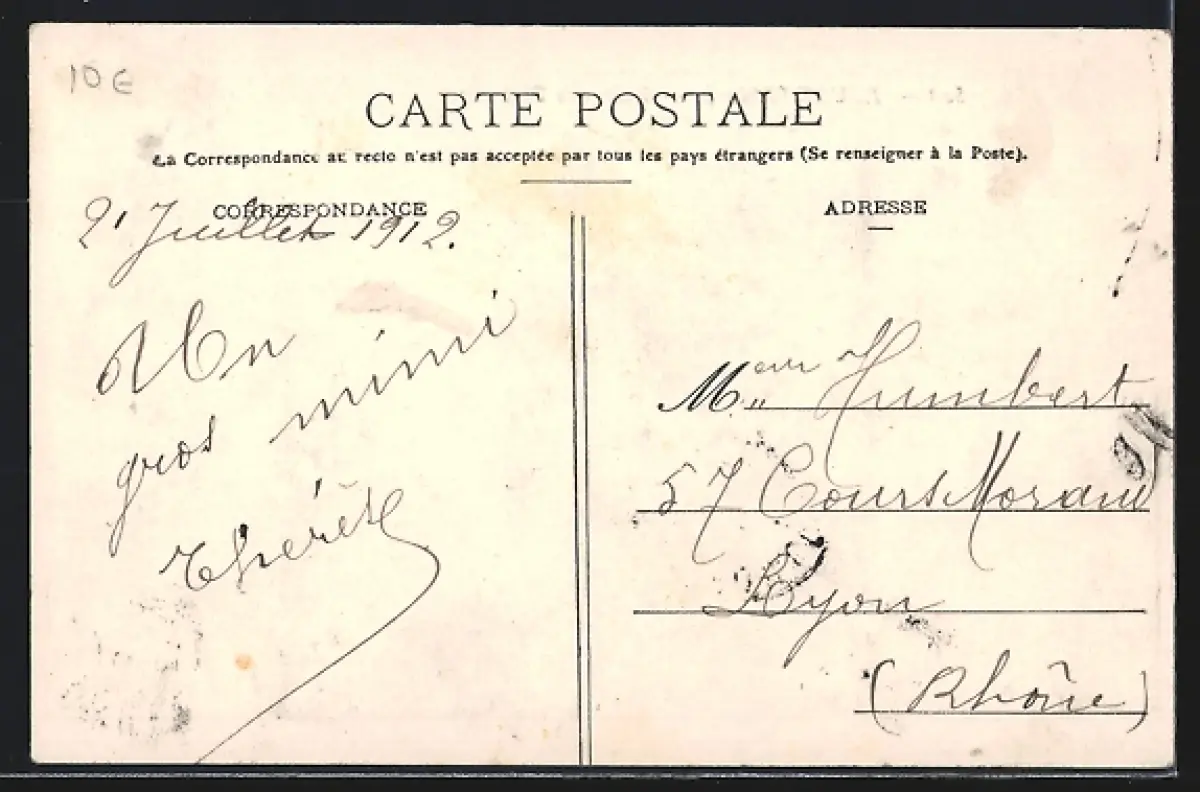 10 €
CARTE POSTALE
La Correspondance au recto n'est pas acceptée par tous les pays étrangers (Se renseigner à la Poste).
CORRESPONDANCE
2 Juillet 1912.
Un
gros mimi
Thérèse
ADRESSE
M Humbert
57 Cours Morand
Lyon
(Rhône)